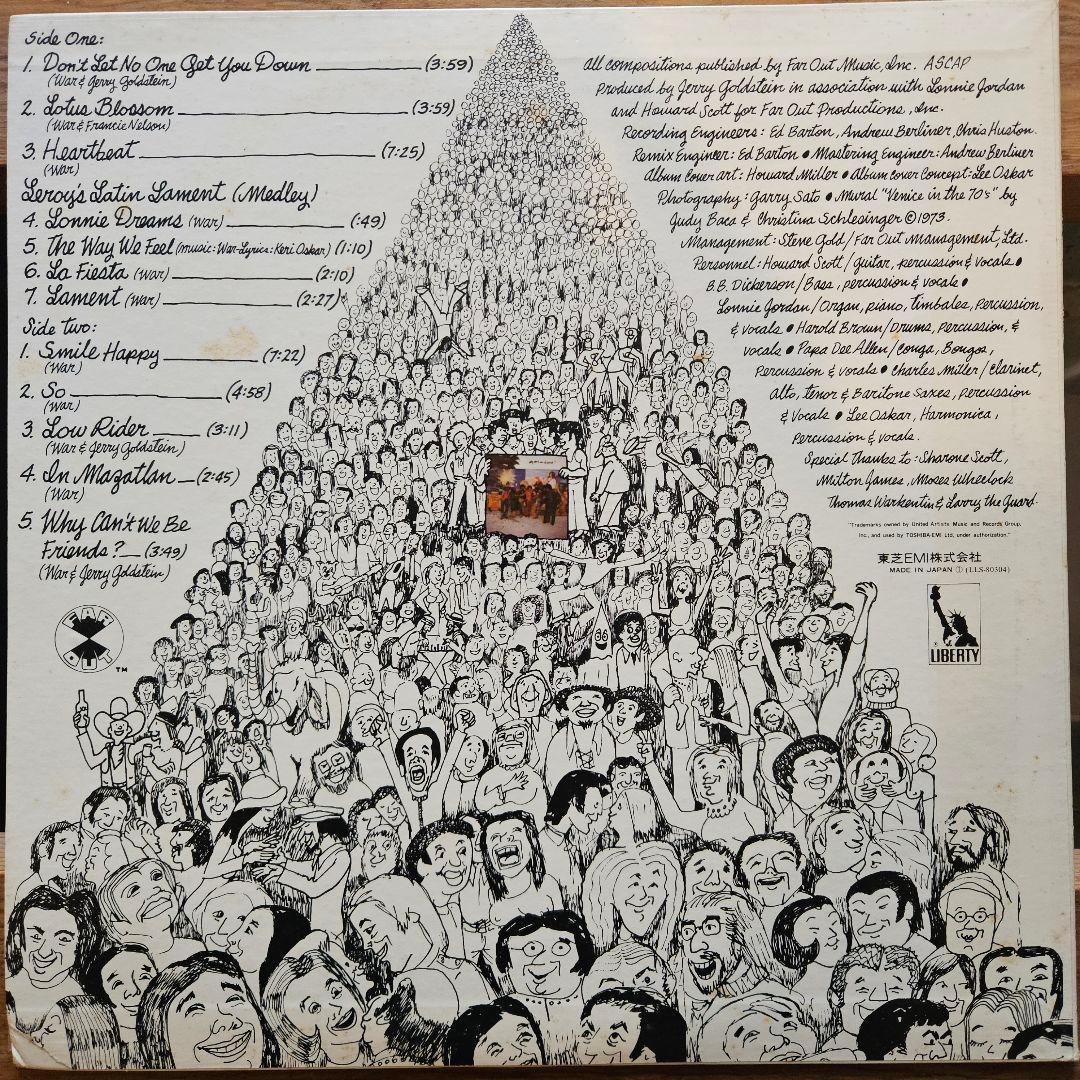 Side One:
1. Don't Let No One Get You Down (3:59)
(War & Jerry Goldstein)
2. Lotus Blossom (3:59)
(War & Francie Nelson)
3. Heartbeat (7:25)
(War)
Leroy's Latin Lament (Medley)
4. Lonnie Dreams (War) (:49)
5. The Way We Feel (music: War-Lyrics: Keri Oskar) (1:10)
6. La Fiesta (War) (2:10)
7. Lament (War) (2:27)
Side two:
1. Smile Happy (7:22)
(War)
2. So (4:58)
(War)
3. Low Rider (3:11)
(War & Jerry Goldstein)
4. In Mazatlan (2:45)
(War)
5. Why Can't We Be
Friends? (3:49)
(War & Jerry Goldstein)
FAR
OUT
TM
All compositions published by Far Out Music, Inc. ASCAP
Produced by Jerry Goldstein in association with Lonnie Jordan
and Howard Scott for Far Out Productions, Inc.
Recording Engineers: Ed Barton, Andrew Berliner, Chris Huston.
Remix Engineer: Ed Barton • Mastering Engineer: Andrew Berliner
Album Cover art: Howard Miller • Album Cover Concept: Lee Oskar
Photography: Garry Sato • Mural "Venice in the 70's" by
Judy Baca & Christina Schlesinger © 1973.
Management: Steve Gold/Far Out Management, Ltd.
Personnel: Howard Scott/Guitar, percussion & vocals •
B.B. Dickerson/Bass, percussion & vocals •
Lonnie Jordan/Organ, piano, timbales, percussion,
& vocals • Harold Brown/Drums, percussion, &
vocals • Papa Dee Allen/Conga, Bongos,
Percussion & vocals • Charles Miller/Clarinet,
Alto, tenor & Baritone Saxes, percussion
& vocals • Lee Oskar, Harmonica,
Percussion & vocals.
Special Thanks to: Sharone Scott,
Milton James, Moses Wheelock
Thomas Warkentin & Larry the Guard.
"Trademarks owned by United Artists Music and Records Group,
Inc., and used by TOSHIBA-EMI Ltd, under authorization."
東芝EMI株式会社
MADE IN JAPAN ① (LLS-80304)
LIBERTY